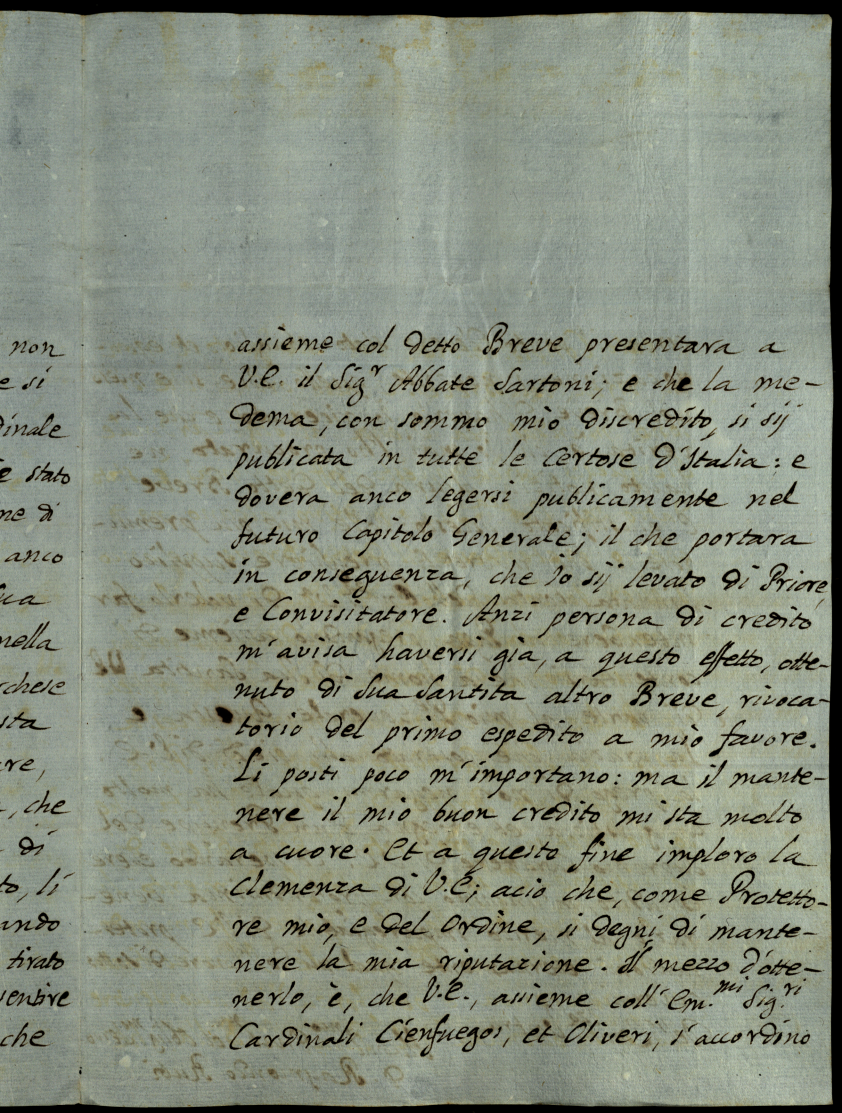 non
e si
dinale
e stato
ne di
anco
sua
nella
rchese
sta
re,
, che
di
to, li
ando
tirato
ventire
che
assieme col detto Breve presentara a
V.E. il Sig.r Abbate Sartoni; e che la me-
dema, con sommo mio discredito, si sij
publicata in tutte le Certose d'Italia: e
dovera anco legersi publicamente nel
futuro Capitolo Generale; il che portara
in conseguenza, che Io sij levato di Priore,
e Convisitatore. Anzi persona di credito
m'avisa haversi gia, a questo effetto, otte-
nuto di Sua Santita altro Breve, rivoca-
torio del primo espedito a mio favore.
Li posti poco m'importano: ma il mante-
nere il mio buon credito mi sta molto
a cuore. Et a questo fine imploro la
Clemenza di V.E; acio che, come Protetto-
re mio, e del Ordine, si degni di mante-
nere la mia riputazione. Il mezzo d'otte-
nerlo, è, che V.E., assieme coll'Em.mi Sig.ri
Cardinali Cienfuegos, et Oliveri, s'accordino